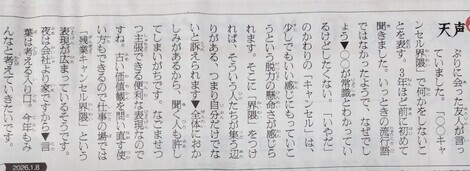 天声
ぶりに会った友人が言っ
ていました。「〇〇キャ
ンセル界隈」で何かをしないこ
とを表す。3年ほど前に初めて
聞きました。いっときの流行語
ではなかったようで、なぜでし
ょう▼〇〇が常識とわかってい
るけどしたくない。「いやだ」
のかわりの「キャンセル」は、
少しでもいい感じにもっていこ
うという脱力の懸命さが感じら
れます。そこに「界隈」をつけ
れば、そういう人たちが集う辺
りがある、つまり自分だけでな
いと訴えられます▼全体におか
しみがあるから、聞く人も許し
てしまいがちです。なごませつ
つ主張できる便利な表現なので
すね。古い価値観を問い直す使
い方もできるので仕事の場では
「残業キャンセル界隈」という
表現が広まっているそうです。
夜は会社より家ですから▼言
葉は考える入り口。今年もみ
んなと考えていきたいです。
2026.1.8